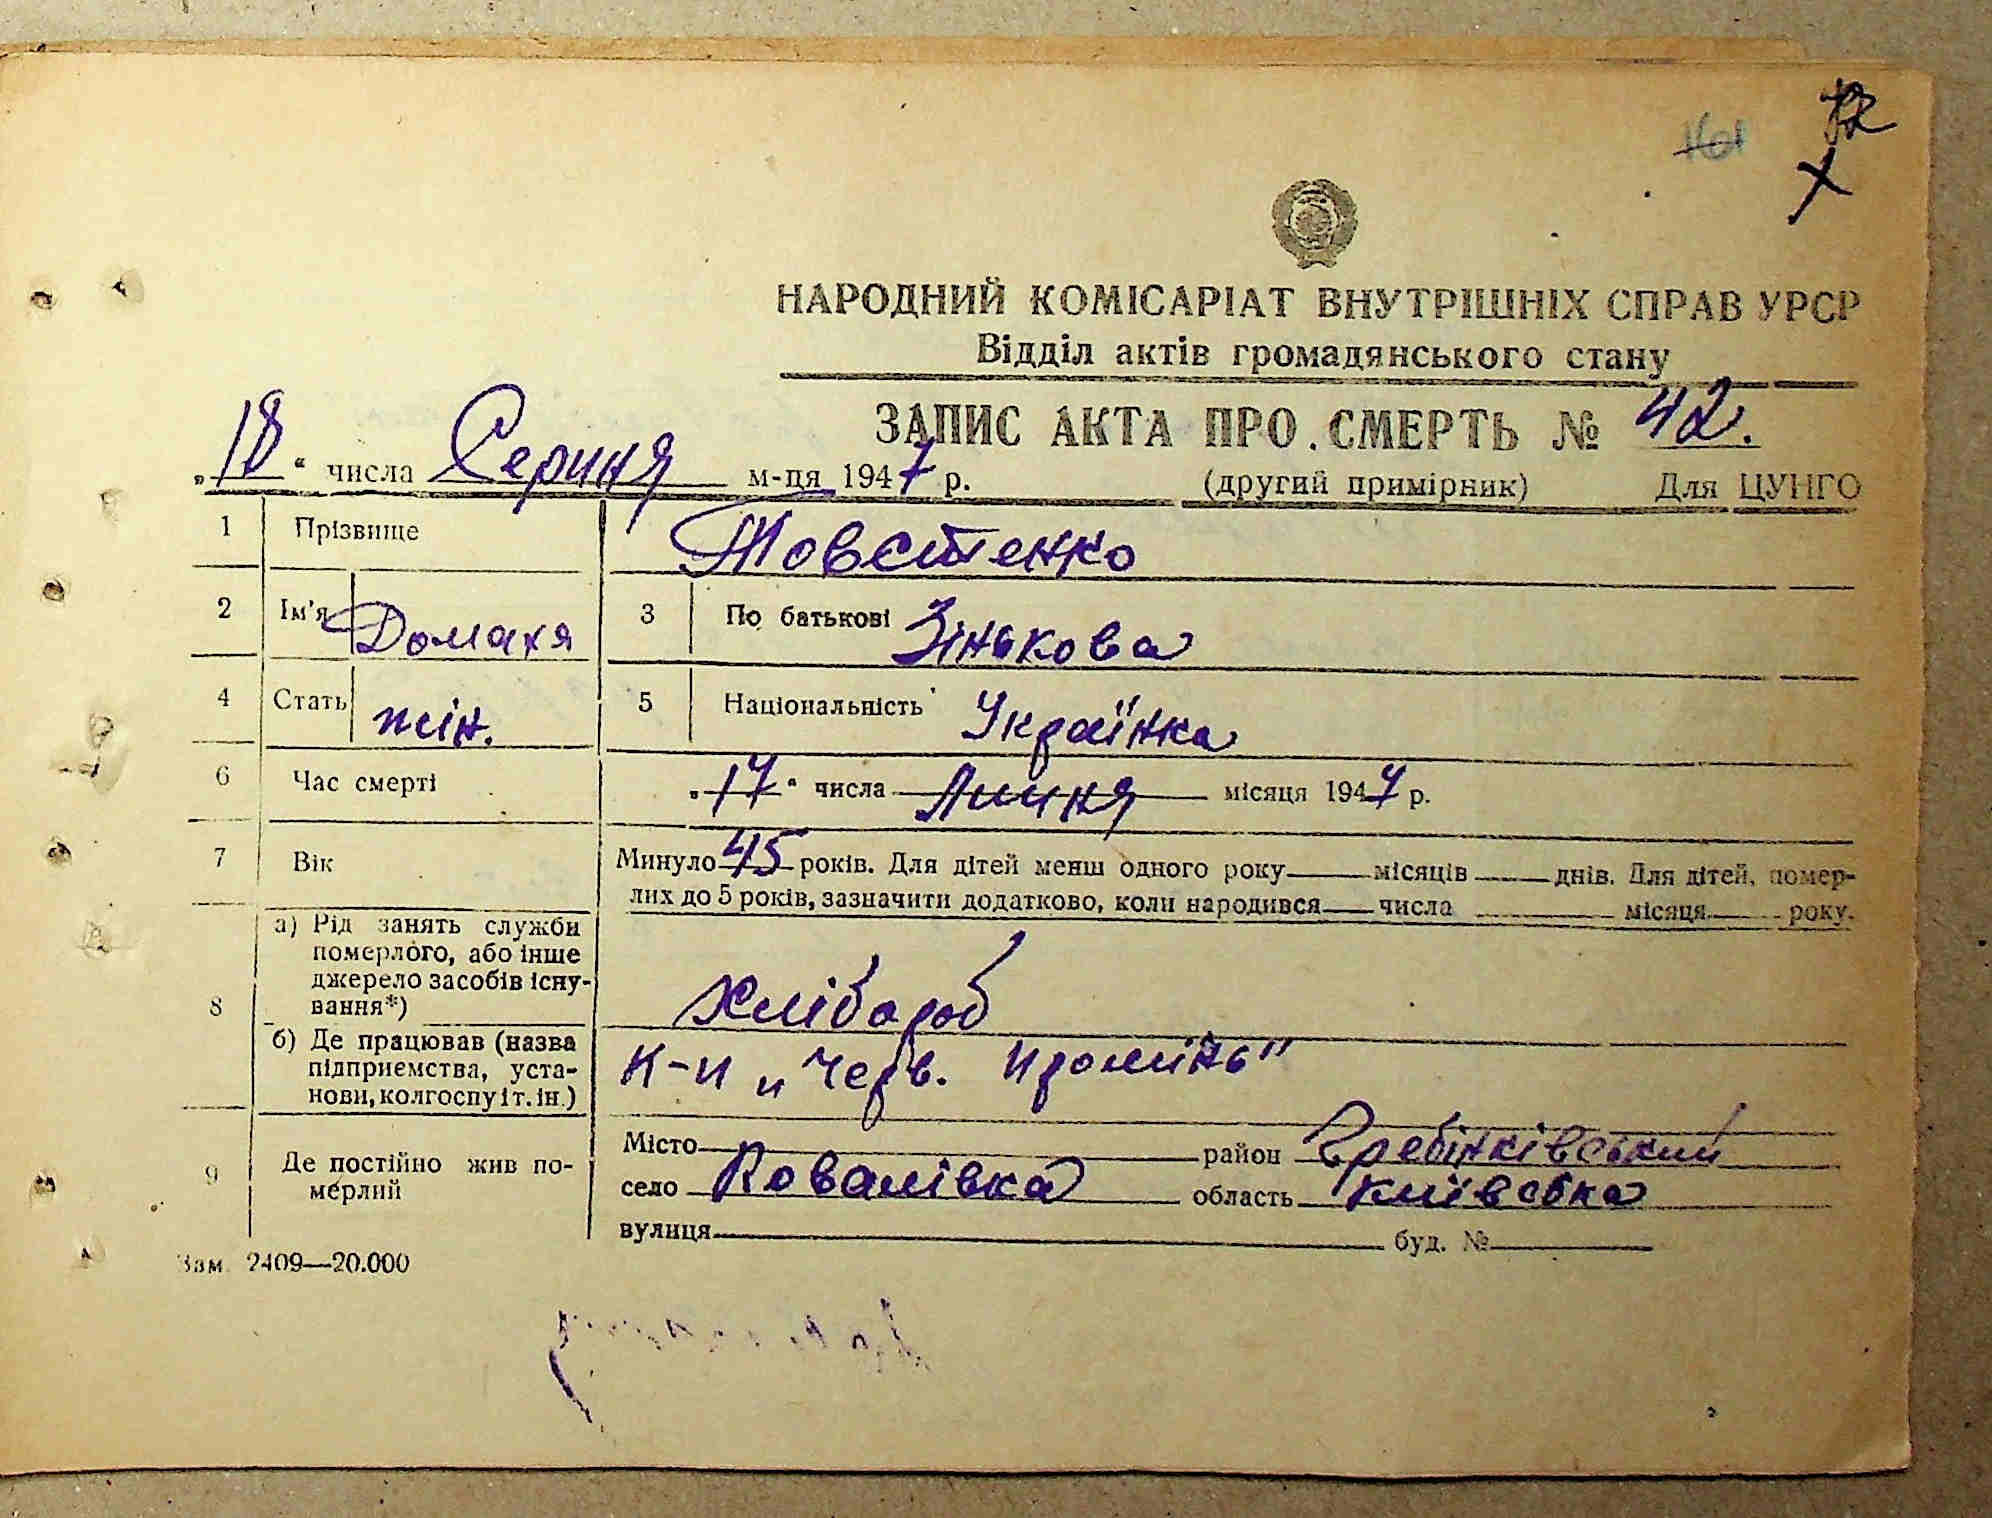 161
72
НАРОДНИЙ КОМІСАРІАТ ВНУТРІШНІХ СПРАВ УРСР
Відділ актів громадянського стану
ЗАПИС АКТА ПРО СМЕРТЬ № 42.
„18“ числа Серпня м-ця 1947 р. (другий примірник) Для ЦУНГО
1 Прізвище Товстенко
2 Ім'я Домахя 3 По батькові Зінькова
4 Стать жін. 5 Національність Українка
6 Час смерті „17“ числа Липня місяця 1947 р.
7 Вік Минуло 45 років. Для дітей менш одного року місяців днів. Для дітей, помер-
лих до 5 років, зазначити додатково, коли народився числа місяця року.
8 а) Рід занять служби
померлого, або інше
джерело засобів існу-
вання*) Хлібороб
б) Де працював (назва
підприемства, уста-
нови, колгоспу і т. ін.) К-п „Черв. промінь"
9 Де постійно жив по-
мерлий
Місто район Гребінківський
село Ковалівка область Київська
вулиця буд. №
Зам. 2409—20.000